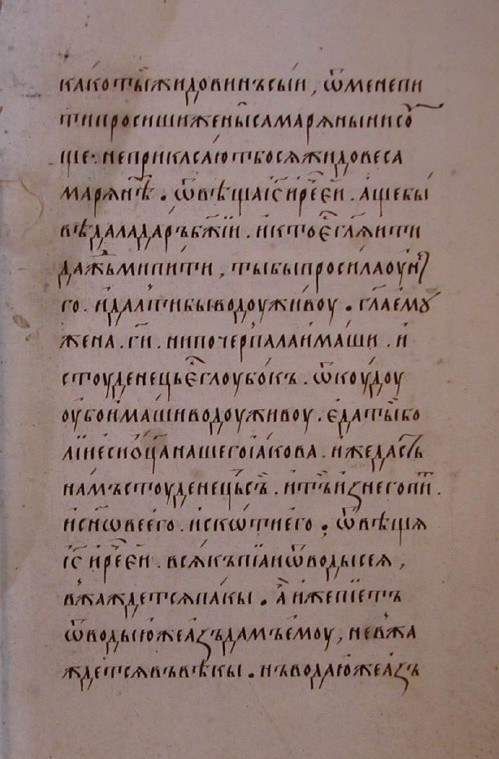 како ты жидовинъ сыи, ѿ мене пи
ти просиши жены самаряныни сѹ
ще. не прикасаютбося жидове са
марянѣ. ѿвѣща іс҃ и рече еи. аще бы
вѣдала даръ бж҃іи. и кто є҆ гл҃яи ти
даждь ми пити, ты бы просила оу н҄е
го. и далъ ти бы водоу живоу. гл҃а емꙋ
жена. гн҃. ни почерпала имаши. и
стоуденець є҆ глоубокъ. ѿкоудоу
оубо имаши водоу живоу. еда ты бо
ліи еси оц҃а нашего іакова. иже дасть
намъ стоуденець сь. и тъ из него пи.
и сн҃ове его. и скоти его. ѿвѣща
іс҃ и рече еи. всякъ піаи ѿ воды сея,
вжаждется пакы. а иже піетъ
ѿ воды юже азъ дамъ емоу, не вжа
ждется въ вѣкы. нъ вода юже азъ